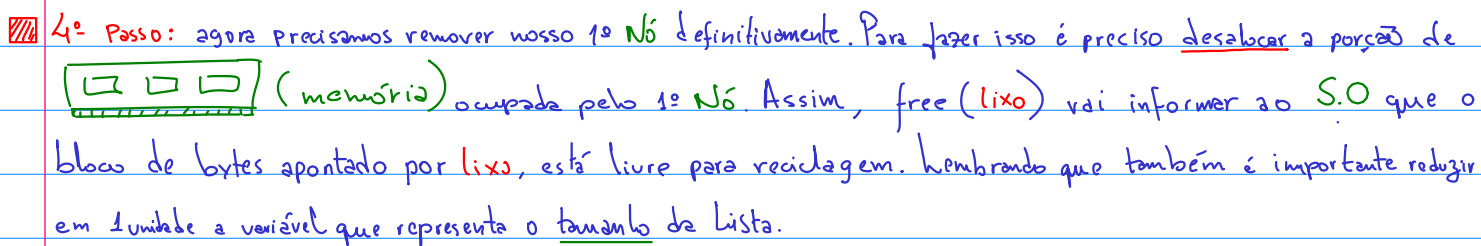 4º Passo: agora precisamos remover nosso 1º Nó definitivamente. Para fazer isso é preciso desalocar a porção de
(memória) ocupada pelo 1º Nó. Assim, free(lixo) vai informar ao S.O que o
bloco de bytes apontado por lixo, está livre para reciclagem. Lembrando que também é importante reduzir
em 1 unidade a variável que representa o tamanho da Lista.